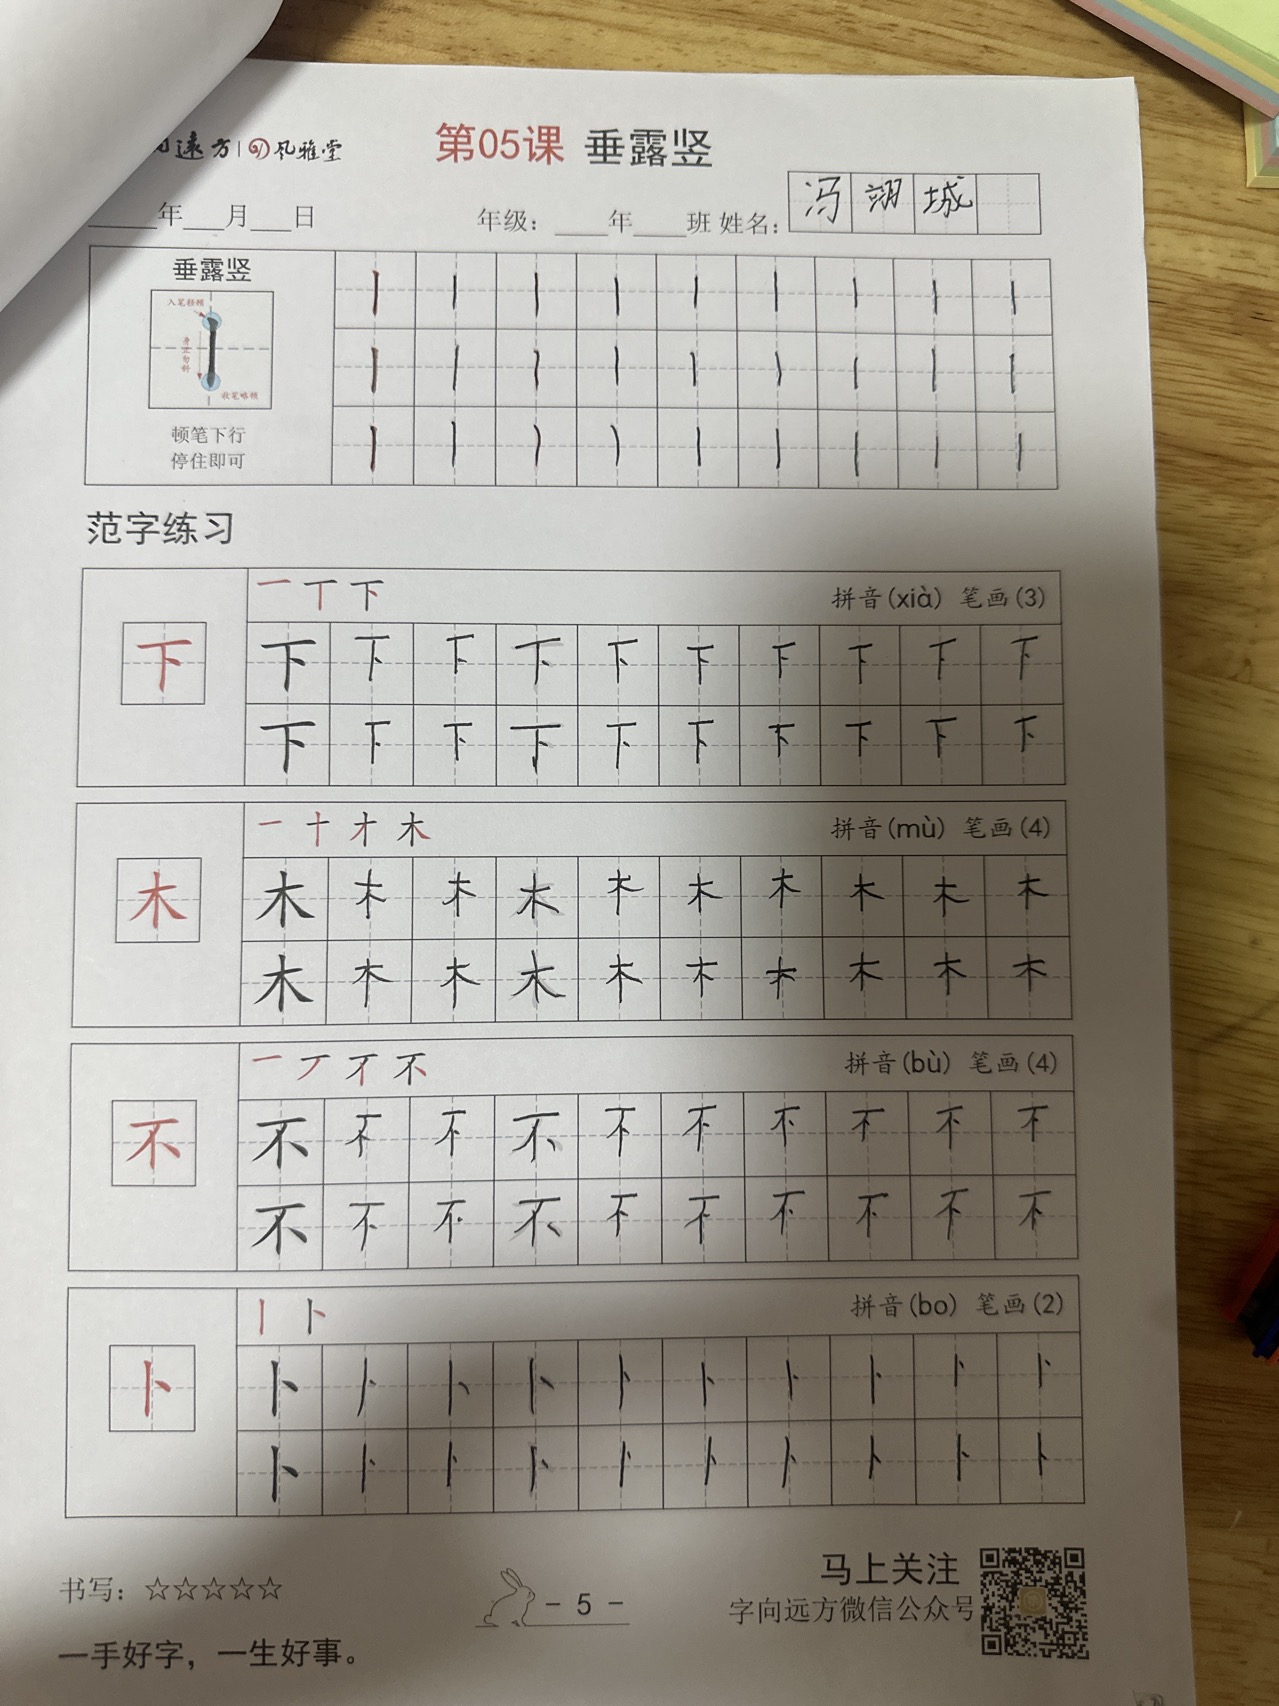 遠方 | 风雅堂
第05课 垂露竖
___年___月___日 年级：___年___班 姓名： 冯 翊 城
垂露竖
入笔轻顿
身正勿斜
收笔略顿
顿笔下行
停住即可
范字练习
一 丅 下 拼音(xià) 笔画(3)
下 下 下 下 下 下 下 下 下 下 下
下 下 下 下 下 下 下 下 下 下
一 十 才 木 拼音(mù) 笔画(4)
木 木 木 木 木 木 木 木 木 木 木
木 木 木 木 木 木 木 木 木 木
一 丆 不 拼音(bù) 笔画(4)
不 不 不 不 不 不 不 不 不 不 不
不 不 不 不 不 不 不 不 不 不
丨 卜 拼音(bo) 笔画(2)
卜 卜 卜 卜 卜 卜 卜 卜 卜 卜 卜
卜 卜 卜 卜 卜 卜 卜 卜 卜 卜
书写：☆☆☆☆☆
一手好字，一生好事。
- 5 -
马上关注
字向远方微信公众号